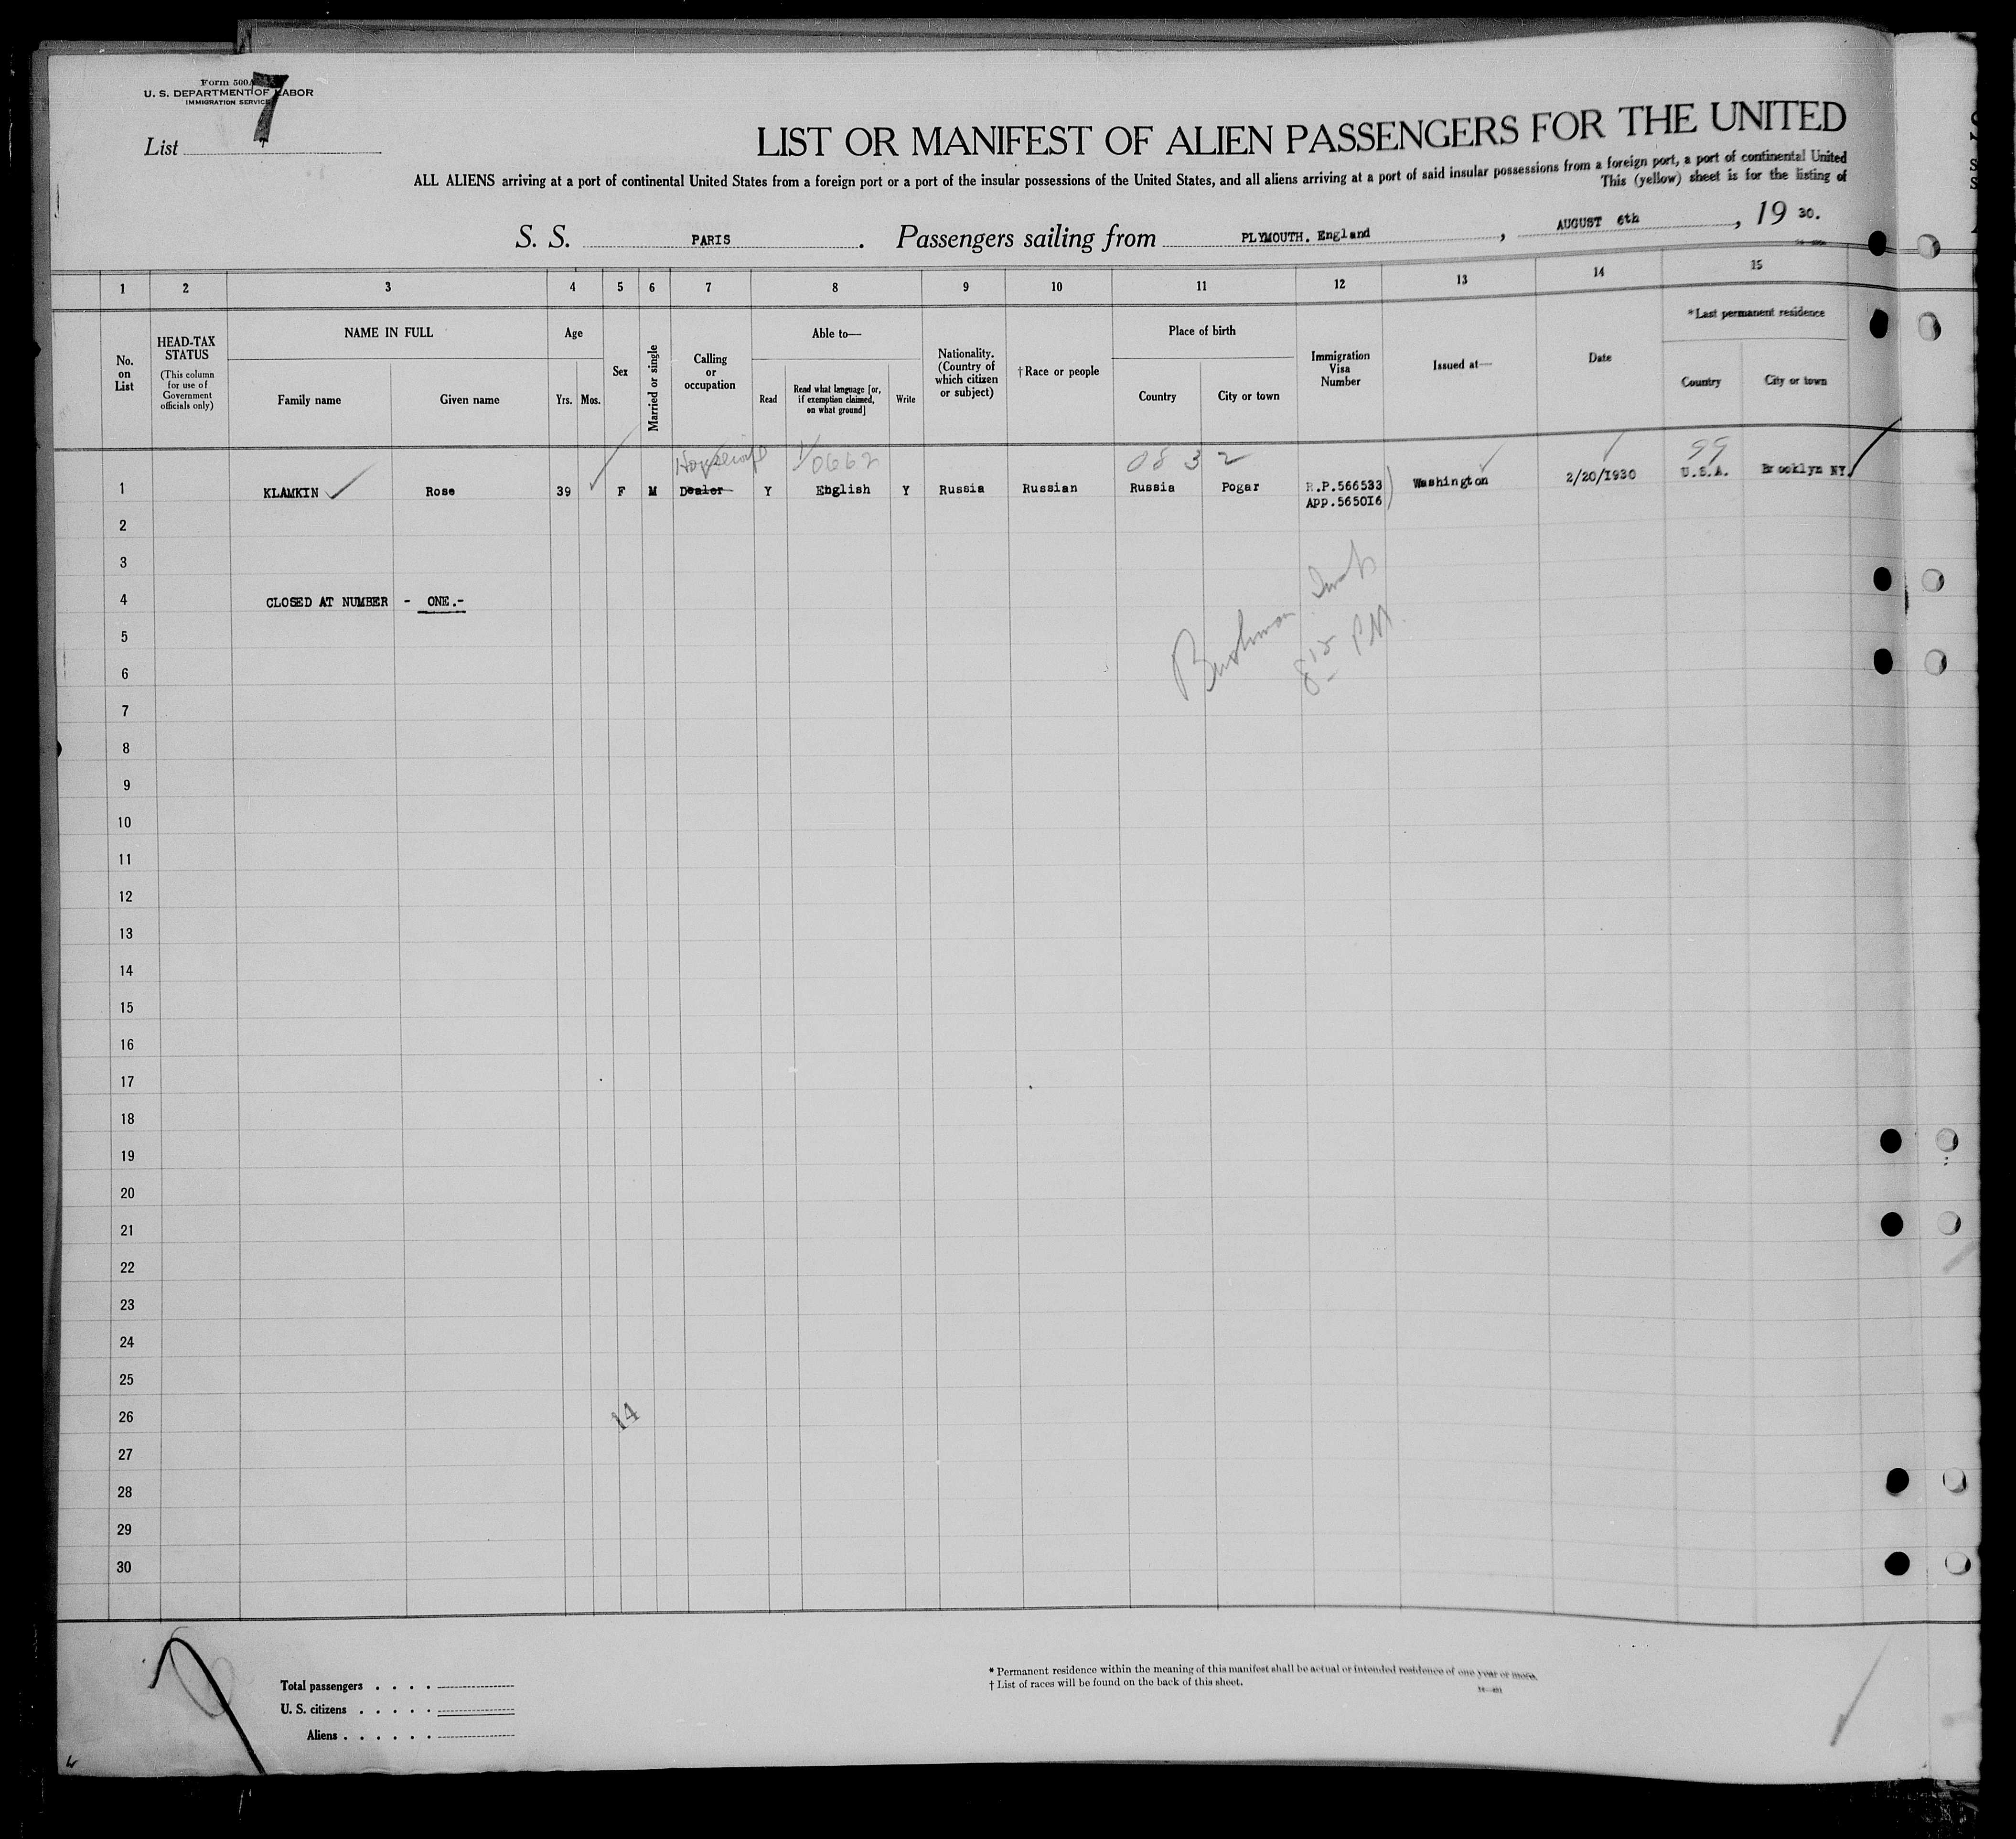 Form 500
U. S. DEPARTMENT OF LABOR
IMMIGRATION SERVICE
7
List
LIST OR MANIFEST OF ALIEN PASSENGERS FOR THE UNITED
ALL ALIENS arriving at a port of continental United States from a foreign port or a port of the insular possessions of the United States, and all aliens arriving at a port of said insular possessions from a foreign port, a port of continental United
This (yellow) sheet is for the listing of
S. S. PARIS . Passengers sailing from PLYMOUTH. England , AUGUST 6th , 19 30.
1 2 3 4 5 6 7 8 9 10 11 12 13 14 15
No. on List
HEAD-TAX STATUS
(This column for use of Government officials only)
NAME IN FULL
Family name Given name
Age
Yrs. Mos.
Sex
Married or single
Calling or occupation
Able to—
Read
Read what language [or, if exemption claimed, on what ground]
Write
Nationality. (Country of which citizen or subject)
† Race or people
Place of birth
Country City or town
Immigration Visa Number
Issued at—
Date
* Last permanent residence
Country City or town
Housewife 0832 99
1 KLAMKIN Rose 39 F M Dealer Y English Y Russia Russian Russia Pogar R.P.566533 Washington 2/20/1930 U.S.A. Brooklyn NY.
App.565016
2
3
4 CLOSED AT NUMBER - ONE.-
5
6
8 15 PM
7
8
9
10
11
12
13
14
15
16
17
18
19
20
21
22
23
24
25
26 14
27
28
29
30
Total passengers . . . .
U. S. citizens . . . . .
Aliens . . . . . .
* Permanent residence within the meaning of this manifest shall be actual or intended residence of one year or more.
† List of races will be found on the back of this sheet.